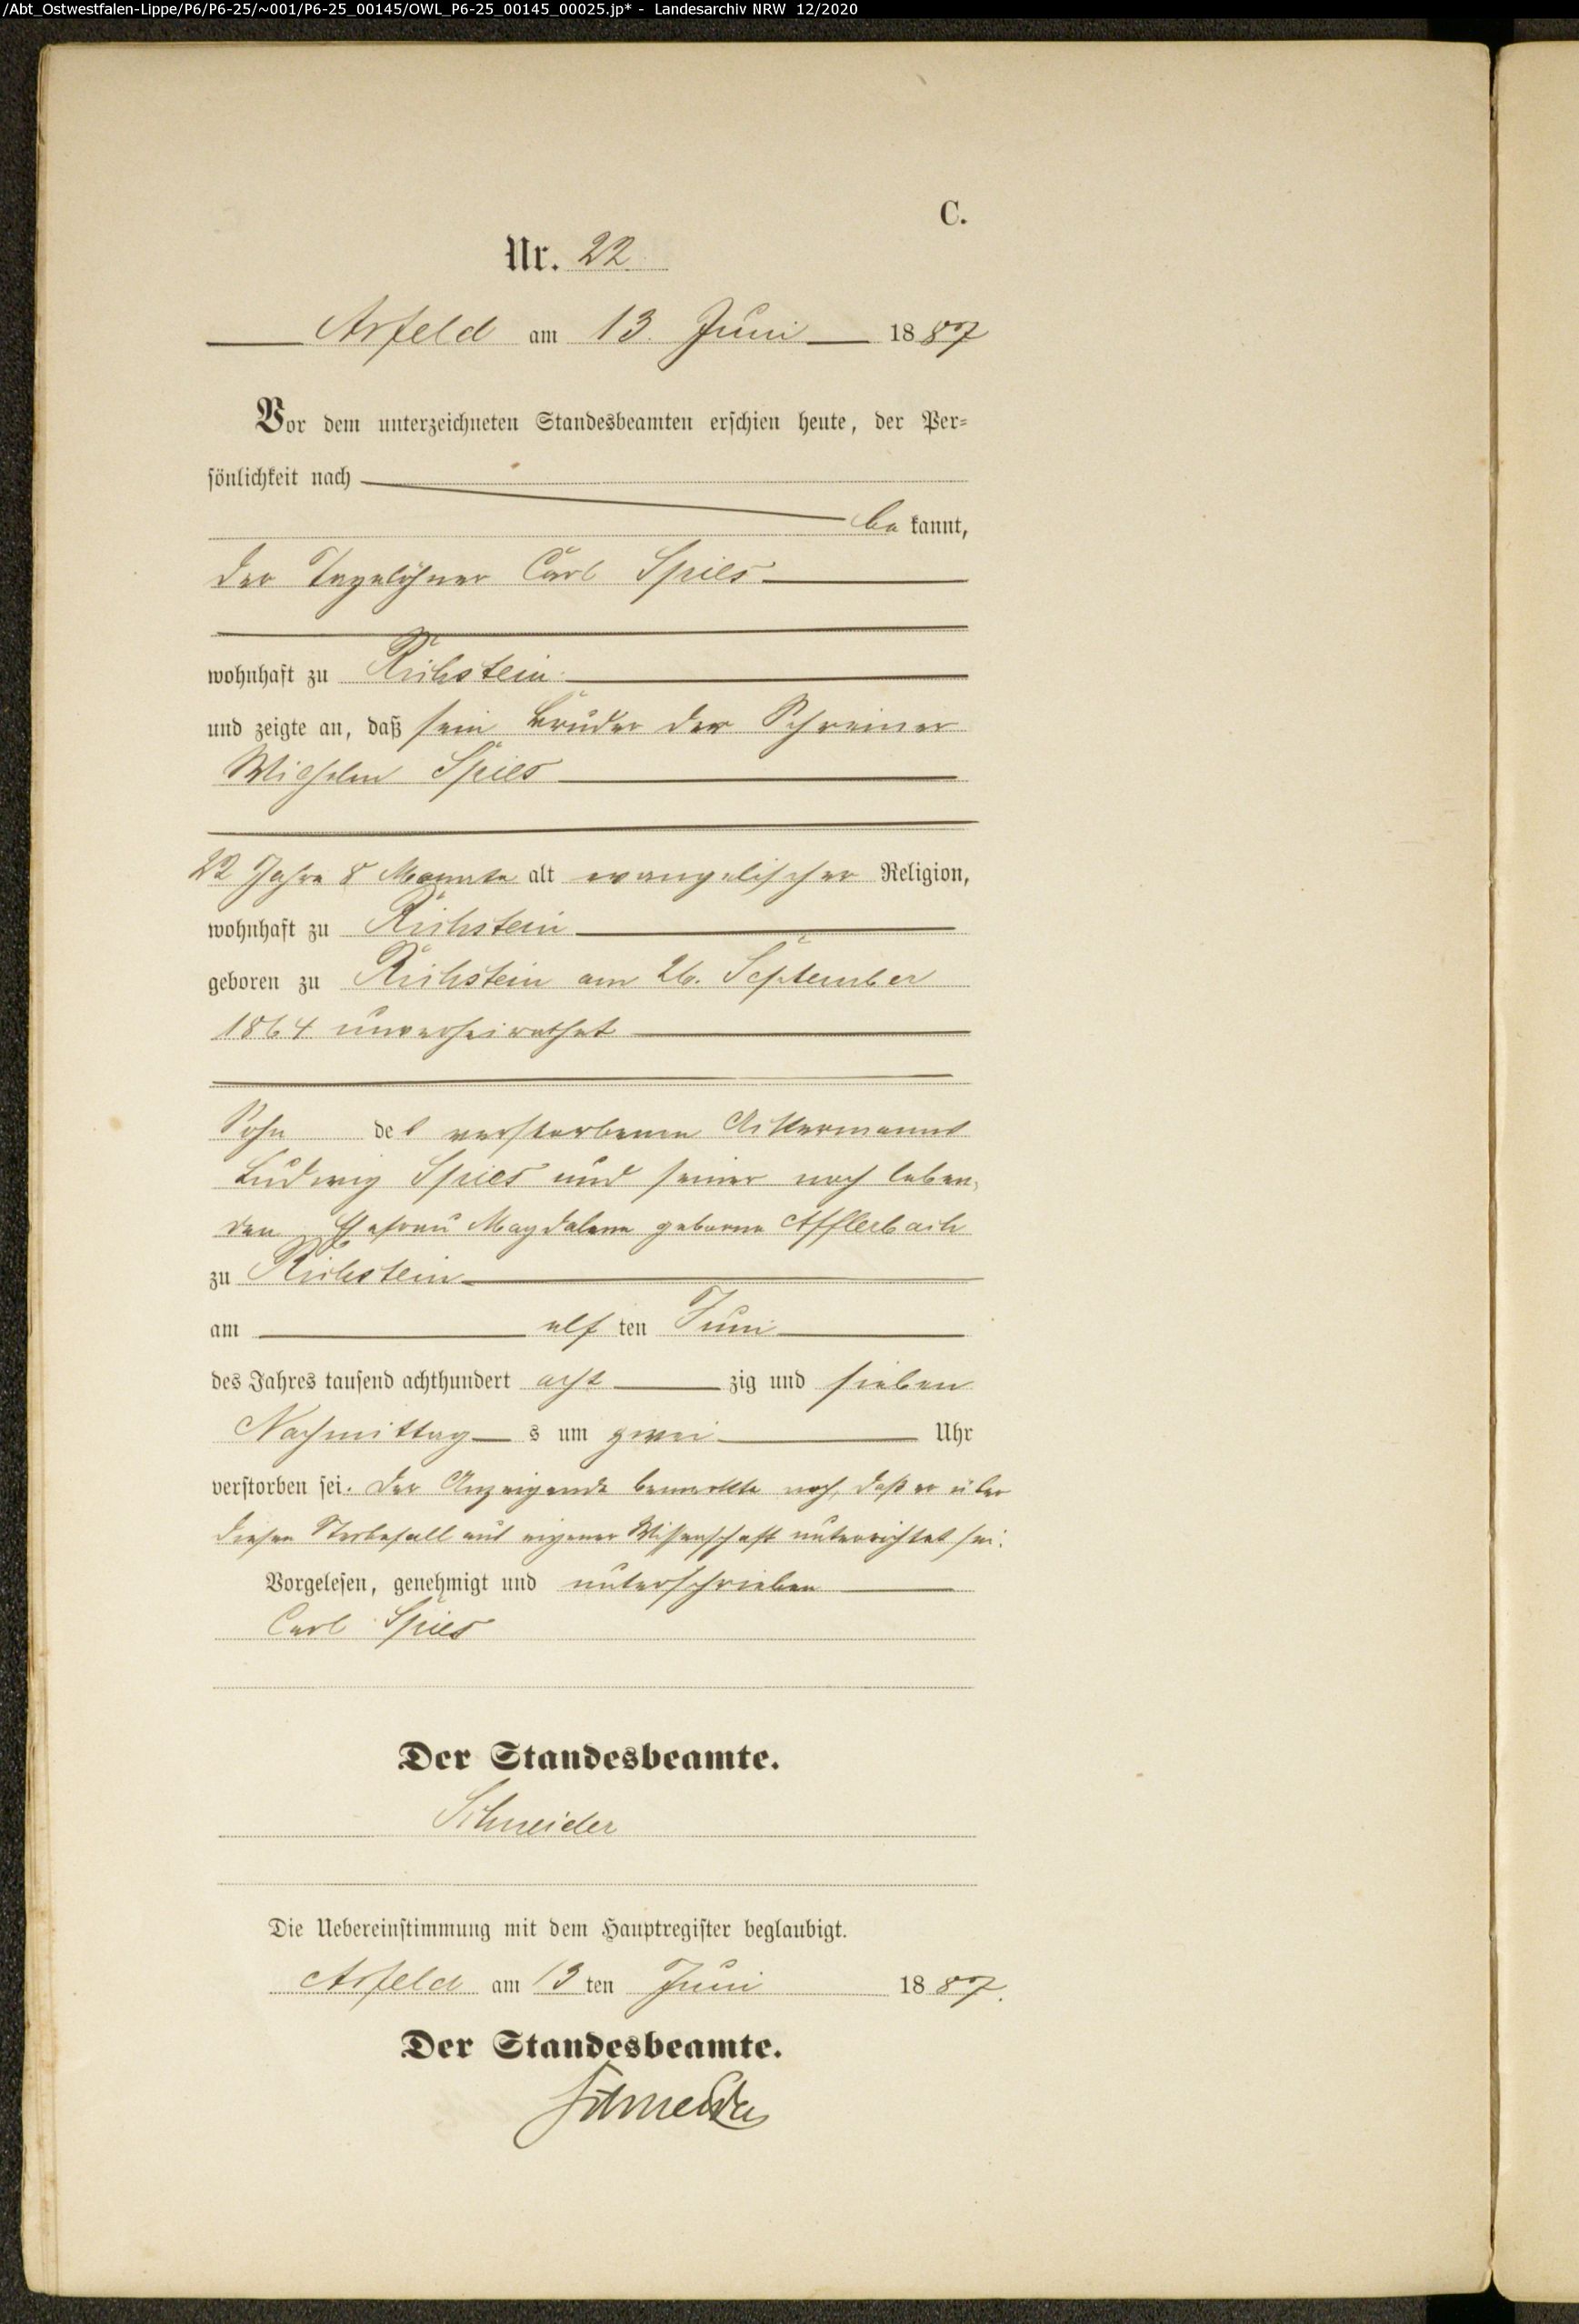 /Abt_Ostwestfalen-Lippe/P6/P6-25/~001/P6-25_00145/OWL_P6-25_00145_00025.jp* - Landesarchiv NRW 12/2020
C.
Nr. 22
Arfeld am 13. Juni 1887
Vor dem unterzeichneten Standesbeamten erschien heute, der Per-
sönlichkeit nach
bekannt,
der Tagelöhner Carl Spies
wohnhaft zu Richstein
und zeigte an, daß sein Bruder der Schreiner
Wilhelm Spies
22 Jahre 8 Monate alt evangelischer Religion,
wohnhaft zu Richstein
geboren zu Richstein am 26. September
1864 unverheirathet
Sohn des verstorbenen Ackermanns
Ludwig Spies und seiner noch leben-
den Ehefrau Magdalena geborne Afflerbach
zu Richstein
am elften Juni
des Jahres tausend achthundert achtzig und sieben
Nachmittags um zwei Uhr
verstorben sei. Der Anzeigende bemerkte noch, daß er über
diesen Sterbefall aus eigener Wissenschaft unterrichtet sei.
Vorgelesen, genehmigt und unterschrieben
Carl Spies
Der Standesbeamte.
Schneider
Die Uebereinstimmung mit dem Hauptregister beglaubigt.
Arfeld am 13ten Juni 1887.
Der Standesbeamte.
Schneider